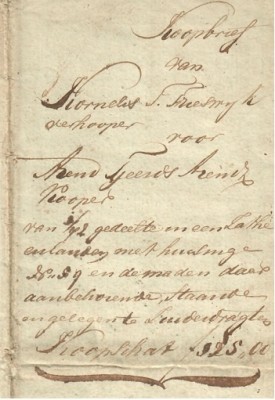 Koopbrief
van
Kornelis T. Frieswyk
verkooper
voor
Arend Tjeerds Arendz
Kooper
van gedeelte in een Sathe
en landen met huisinge
en de maden daar
aanbehorende, staande
en gelegen te Suiderdragten
Koopschat